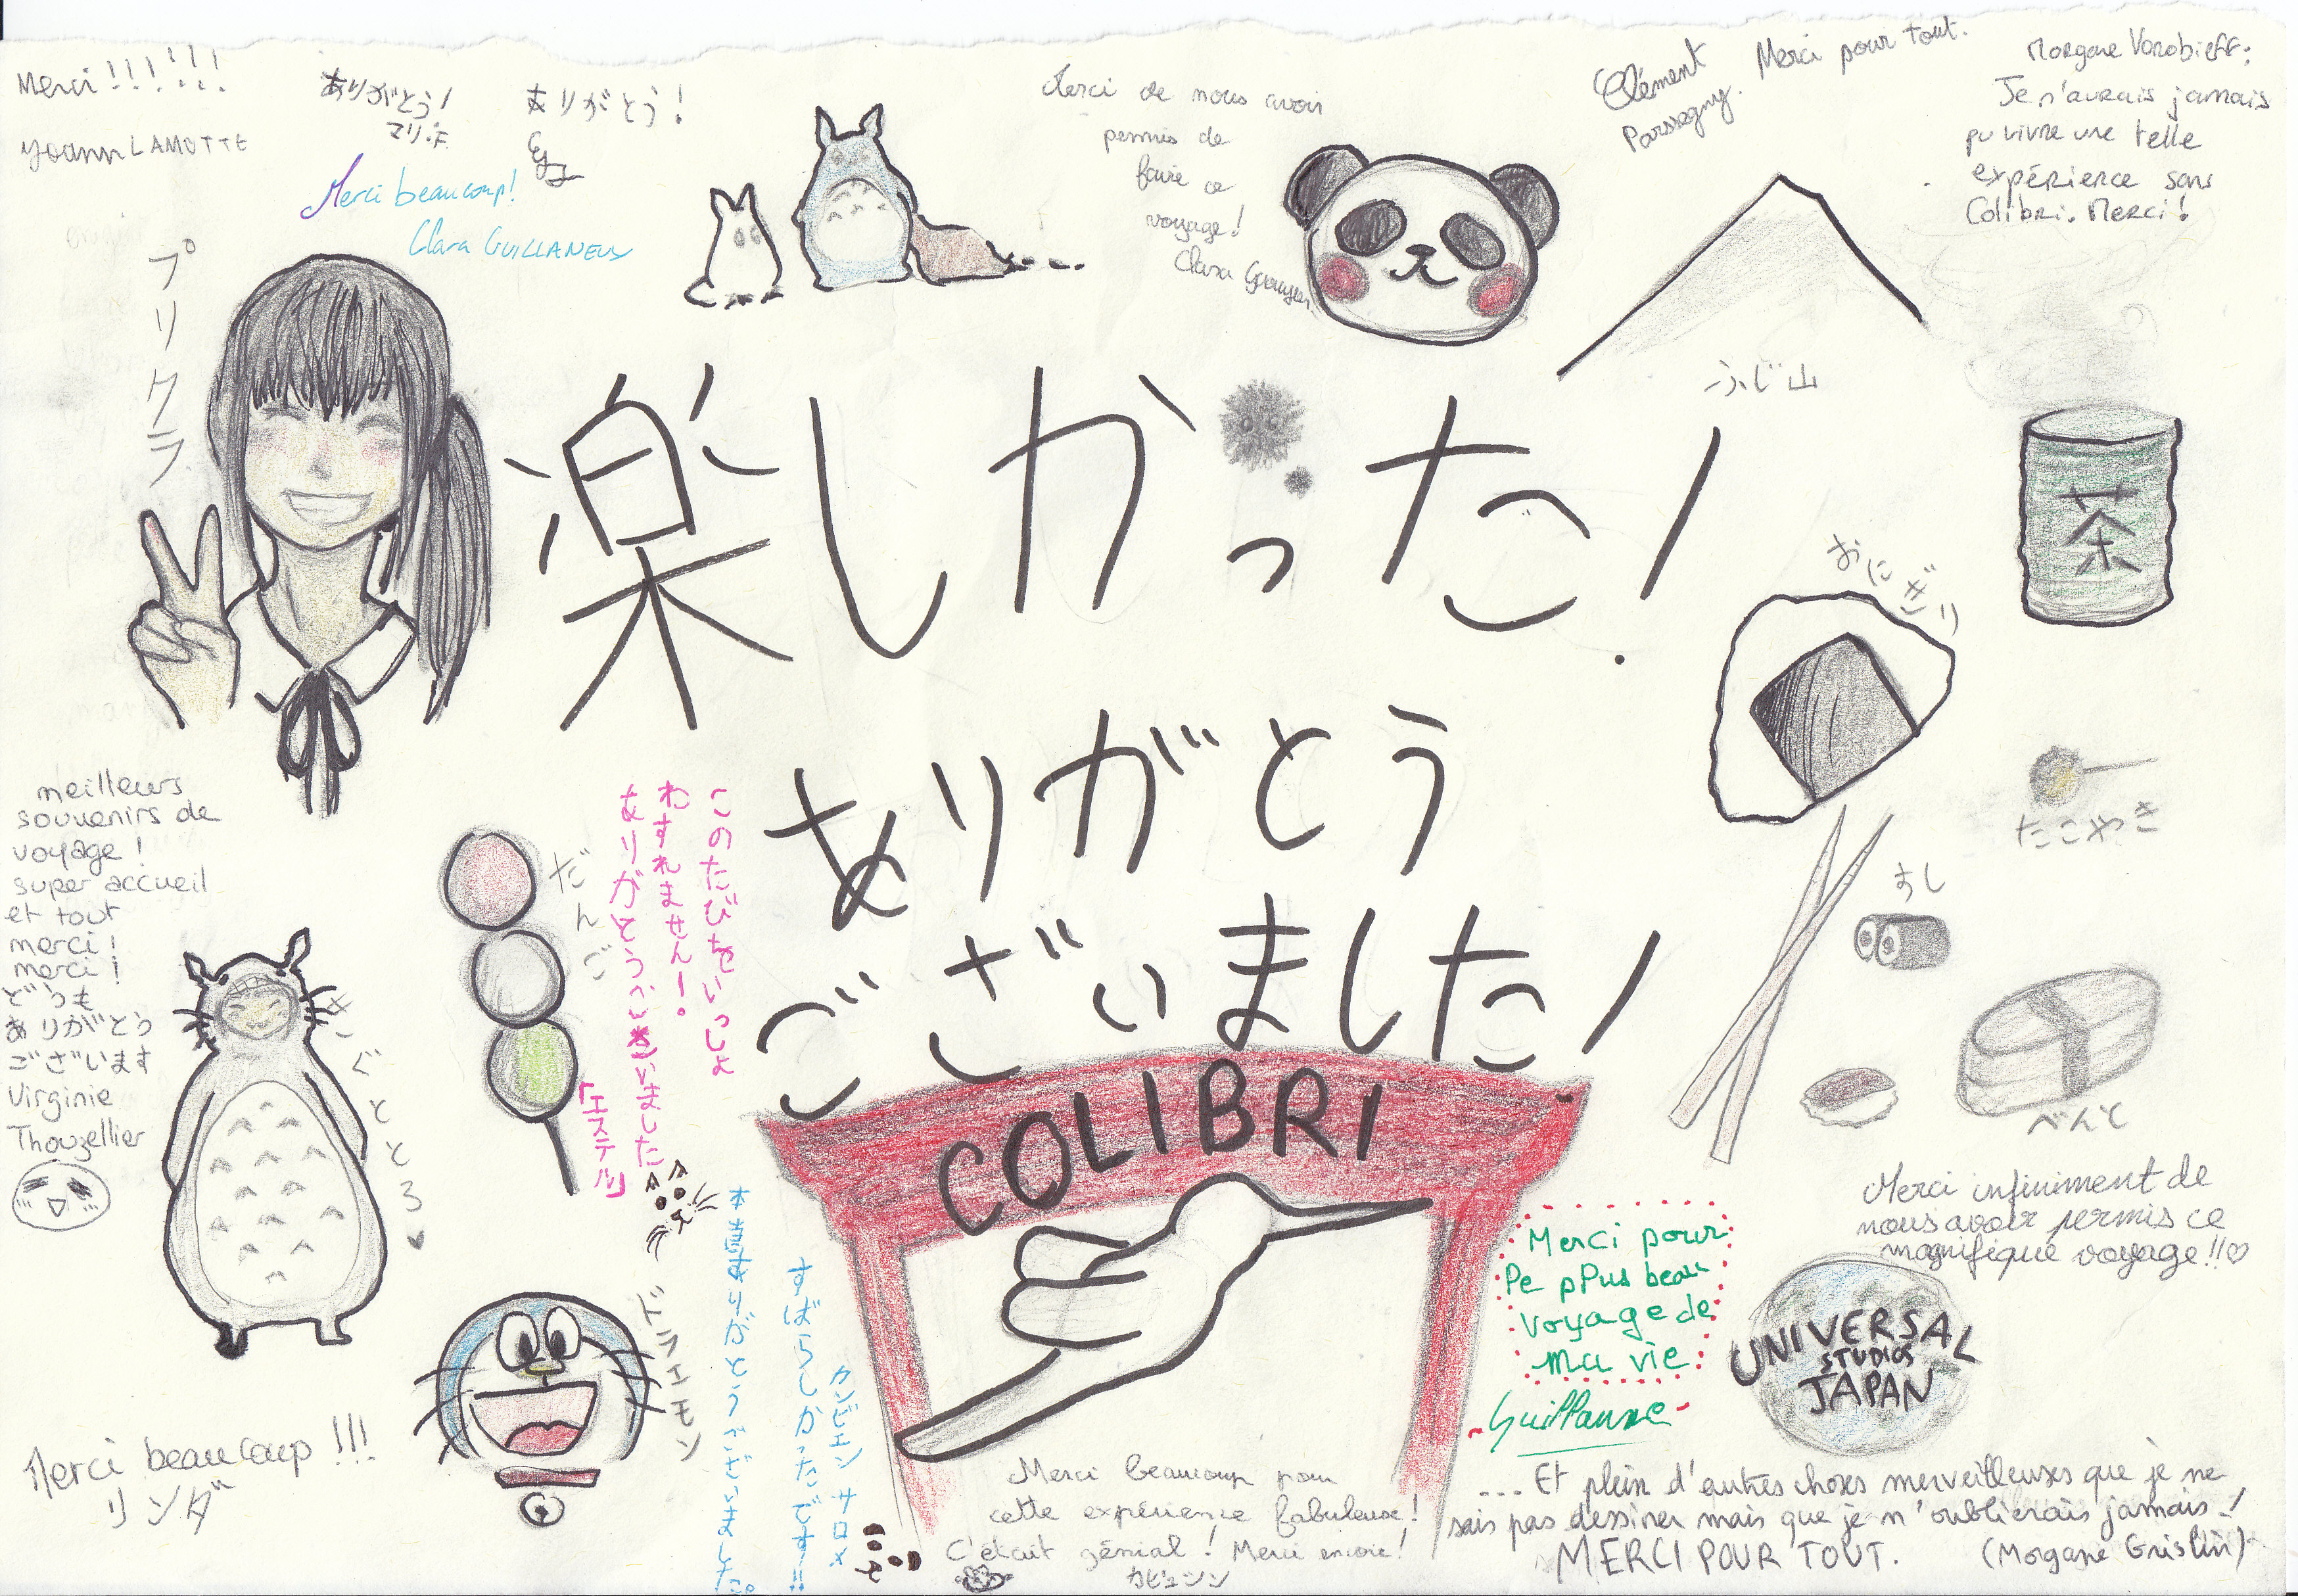 Merci !!!!!!
Yoann LAMOTTE
ありがとう!
マリ.F
ありがとう!
Merci beaucoup!
Clara GUILLANEUX
Merci de nous avoir
permis de
faire ce
voyage!
Clara
Clément
Merci pour tout.
Morgane Vorobieff:
Je n'aurais jamais
pu vivre une telle
expérience sans
Colibri. Merci!
プリクラ
楽しかった!
ふじ山
茶
おにぎり
ありがとう
ございました!
たこやき
すし
べんと
meilleurs
souvenirs de
voyage!
super accueil
et tout
merci!
merci!
どうも
ありがとう
ございます
Virginie
Thouzellier
きぐととろ♥
だんご
このたびをいっしょ
わすれません!。
ありがとうございました
「エステル」
COLIBRI
ドラエモン
ありがとうございました
すばらしかったです
Merci beaucoup !!!
リンダ
Merci beaucoup pour
cette expérience fabuleuse!
C'était génial! Merci encore!
Merci pour
le plus beau
voyage de
ma vie
Guillaume
Merci infiniment de
nous avoir permis ce
magnifique voyage!!♡
UNIVERSAL
STUDIOS
JAPAN
... Et plein d'autres choses merveilleuses que je ne
sais pas dessiner mais que je n'oublierais jamais!
MERCI POUR TOUT.
(Morgane Grislin)